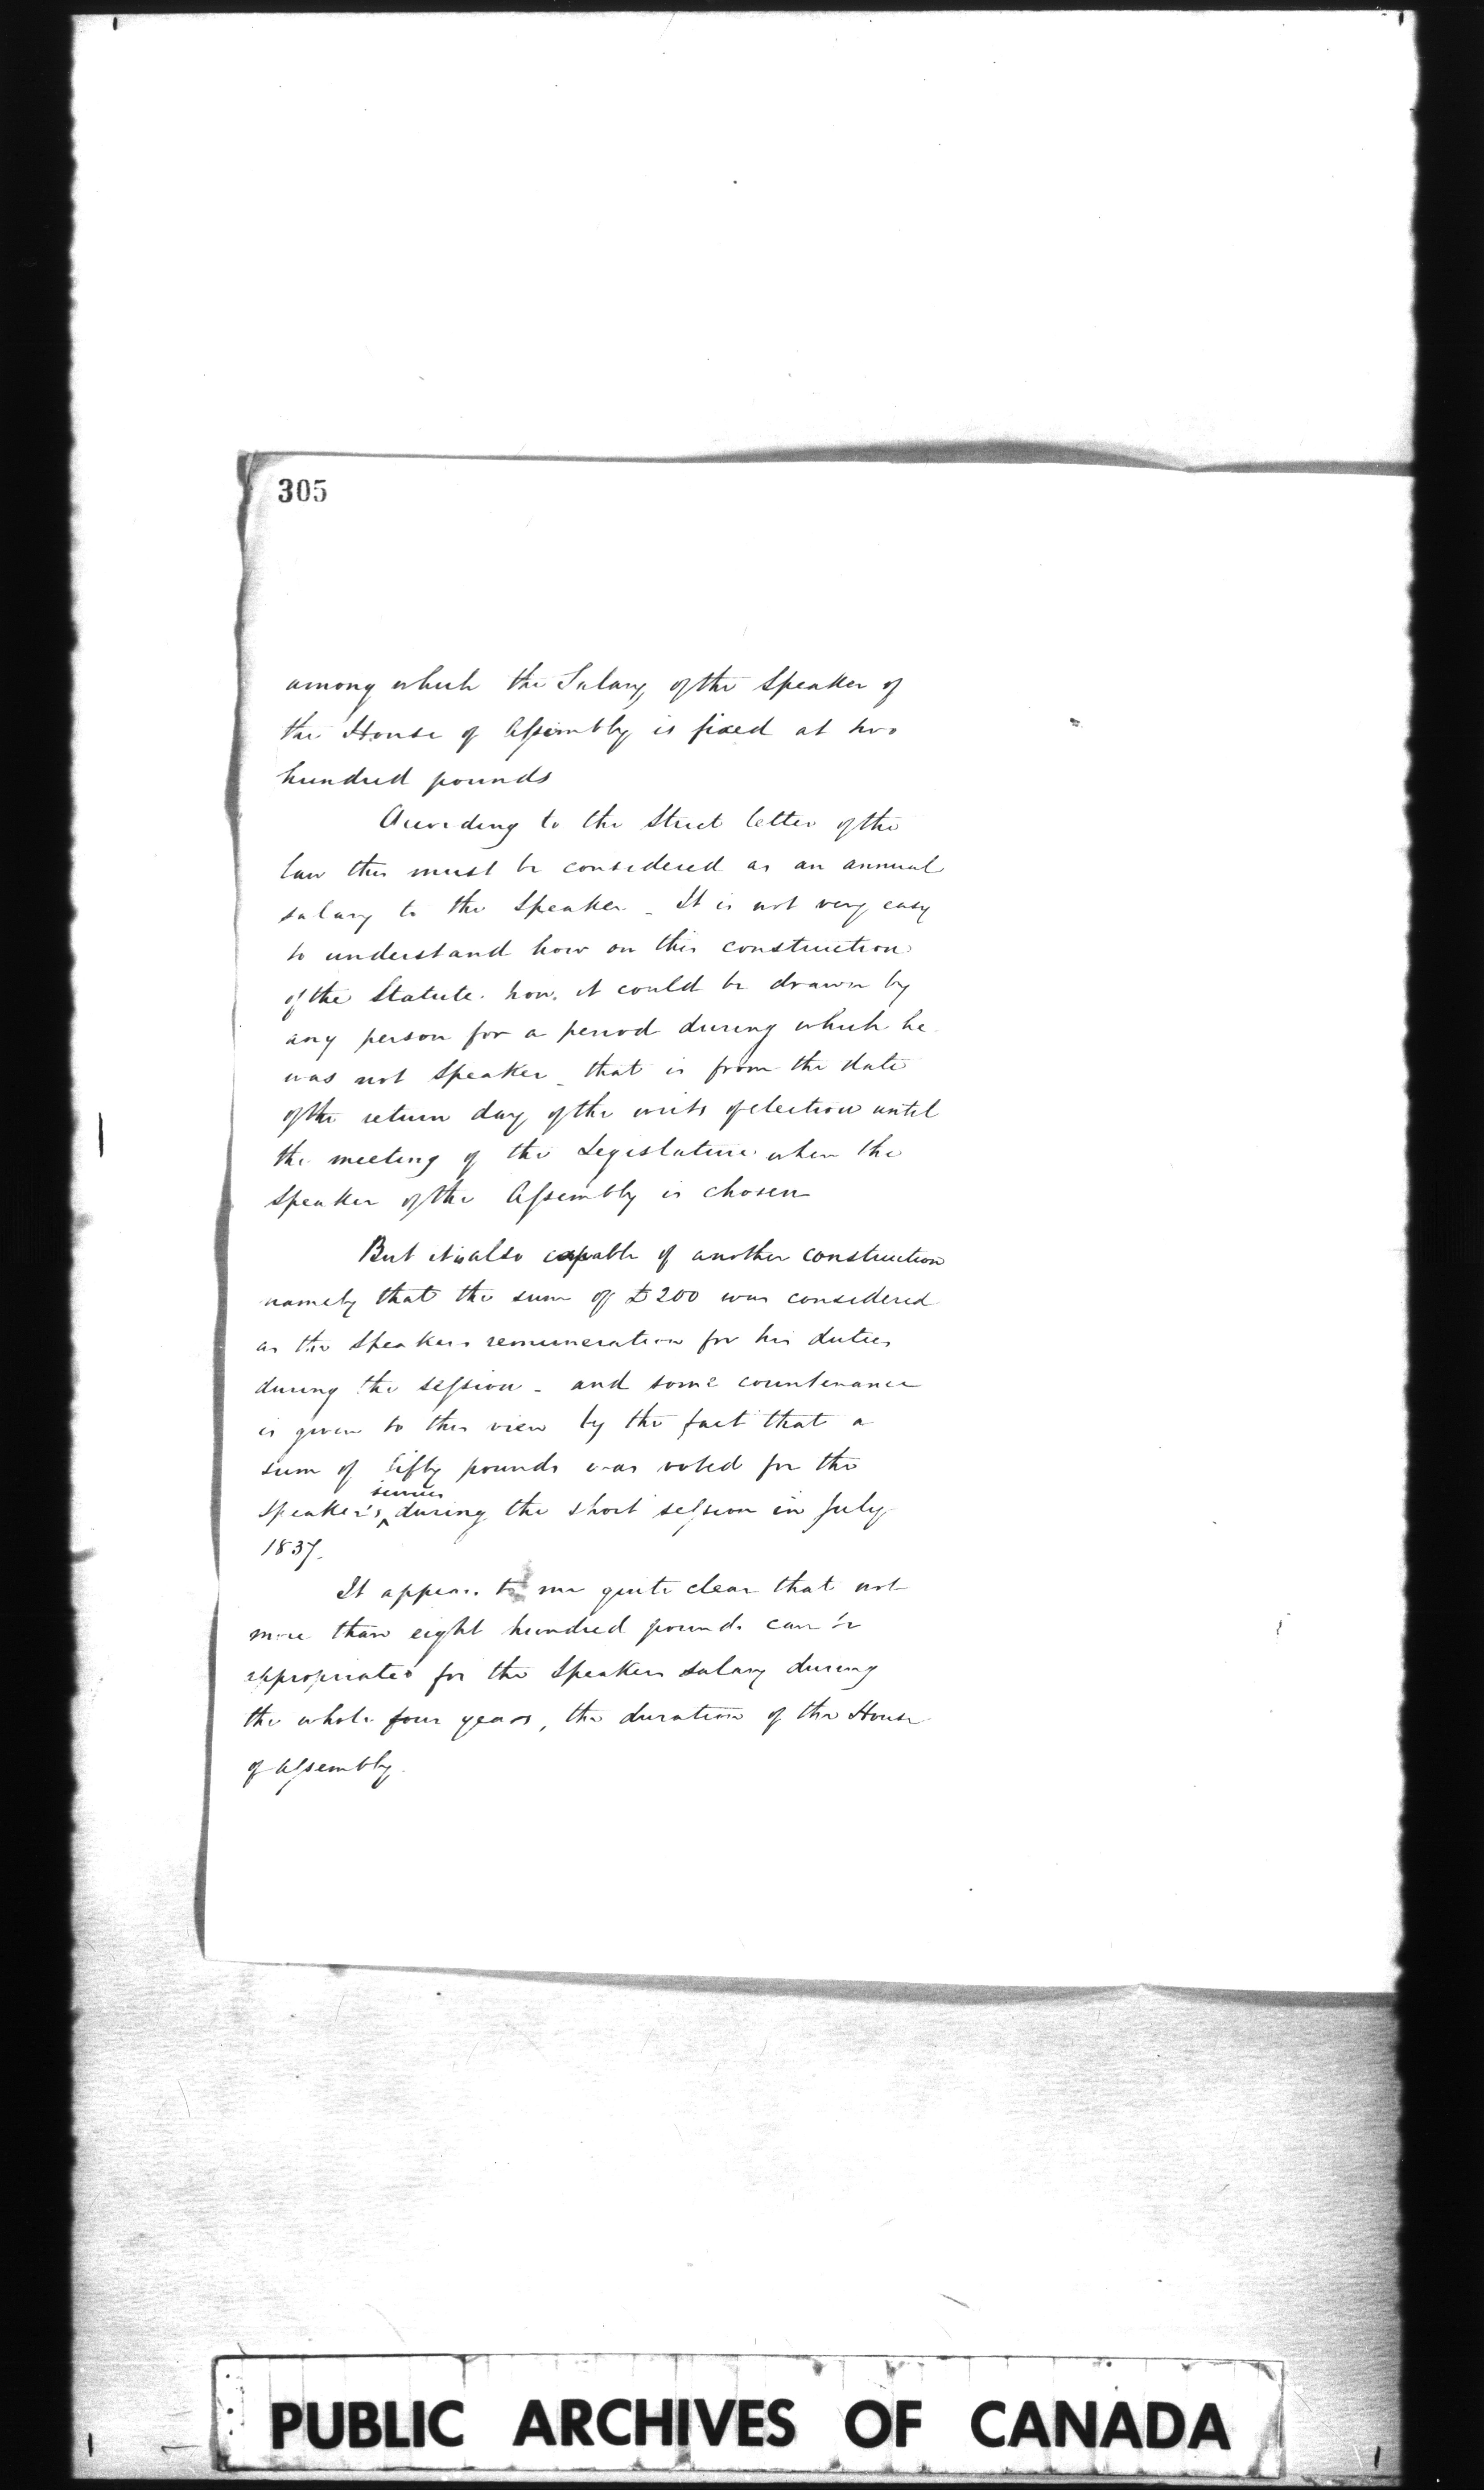 305
among which the Salary of the Speaker of
the House of Assembly is fixed at two
hundred pounds
According to the Strict letter of the
law this must be considered as an annual
salary to the Speaker - It is not very easy
to understand how on this construction
of the Statute. how. it could be drawn by
any person for a period during which he
was not Speaker - that is from the date
of the return day of the writs of election until
the meeting of the Legislature when the
Speaker of the Assembly is chosen
But it is also capable of another construction
namely that the sum of £200 was considered
as the Speakers remuneration for his duties
during the session - and some countenance
is given to this view by the fact that a
sum of fifty pounds was voted for the
services
Speaker's ^ during the short session in July
1837.
It appears to me quite clear that not
more than eight hundred pounds can be
appropriated for the Speakers salary during
the whole four years, the duration of the House
of Assembly.
PUBLIC ARCHIVES OF CANADA